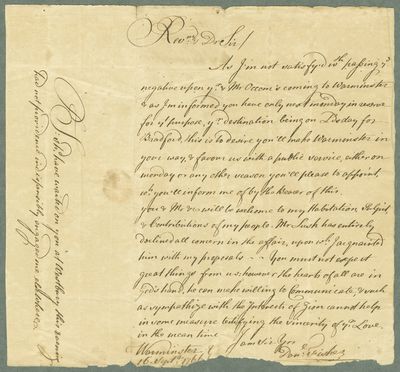 Rev.nd Dr Sir/
As I'm not satisfyd wth passing ye
negative upon yr & Mr Occom's coming to Warminster
& as I'm informed you have only next monday in reserve
for ye purpose, yr destination being on Tuesday for
Bradford, this is to desire you'll make Warminster in
your way, & favour us with a public service, either on
monday or any other season you'll please to appoint
wch you'll inform me of by the Bearer of this.
you & Mr Oc will be welcome to my Habitation,
& Contributions of my people. Mr has entirely
declined all concern in the affair, upon wch I acquainted
him with my proposals -- You must not expect
great things from us; however the hearts of all are in
god's hand, he can make willing to Communicate, & such
as sympathize with the Interests of Zion cannot help
in some measure testifying the sincerity of yr Love.
in the mean time I am Sir Yrs
Warminster
16 Sept.r Danl Fisher
PS I should have waited on you at Westbury this evening
had not providence indispensibly engaged me elsewhere